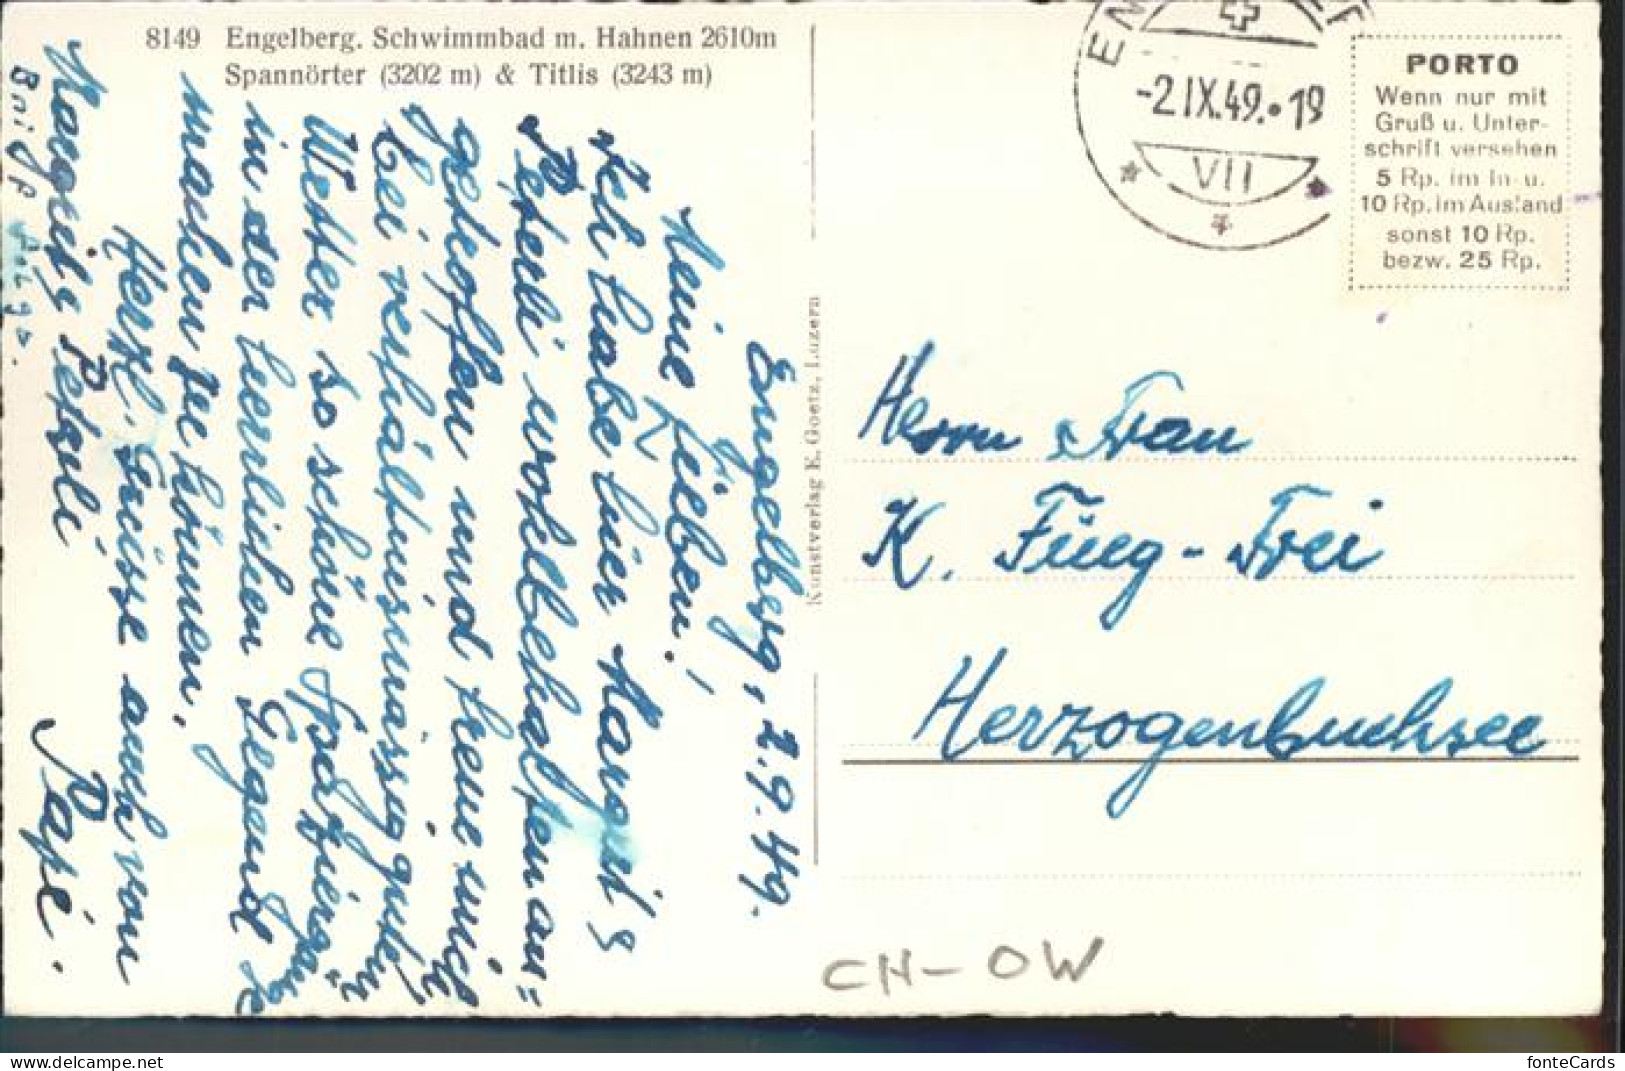 8149 Engelberg. Schwimmbad m. Hahnen 2610m
Spannörter (3202 m) & Titlis (3243 m)
Engelberg, 2.9.49.
Meine Lieben!
Ich habe hier Margrit &
Peterli wohlbehalten an=
getroffen und freue mich
bei verhältnismässig gutem
Wetter so schöne Spaziergänge
in der herrlichen Gegend
machen zu können.
Herzl. Grüsse auch von
Margrit & Peterli
Papi.
Brief folgt.
Kunstverlag K. Goetz, Luzern
-2.IX.49.•19
VII
PORTO
Wenn nur mit
Gruß u. Unter-
schrift versehen
5 Rp. im In- u.
10 Rp. im Ausland
sonst 10 Rp.
bezw. 25 Rp.
Herrn & Frau
K. Füeg-Frei
Herzogenbuchsee
CH-OW
http://www.delcampe.net
fonteCards